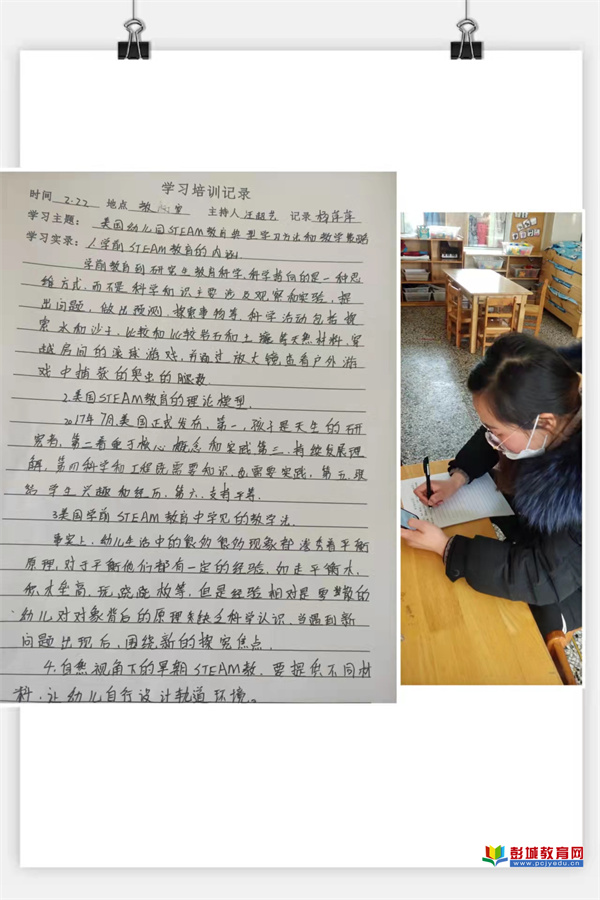 学习培训记录
时间 2.22 地点 教 室 主持人 汪 艺 记录 杨萍萍
学习主题： 美国幼儿园STEAM教育典型学习方法和教学策略
学习实录： 1.学前STEAM教育的内涵
学前教育到研究生教育科学,科学指向的是一种思
维方式,而不是科学知识主要涉及观察和实验，提
出问题，做出预测，探索事物等,科学活动包括探
索水和沙子,比较和比较岩石和土壤等天然材料,穿
越房间的滚球游戏,并通过放大镜查看户外游
戏中捕获的昆虫的腿数.
2.美国STEAM教育的理论模型.
2017年7月美国正式发布,第一,孩子是天生的研
究者,第二着重于核心概念和实践第三.持续发展理
解,第四科学和工程既需要知识,也需要实践,第五.联
结学生兴趣和经历,第六,支持平等.
3.美国学前STEAM教育中常见的教学法.
事实上,幼儿生活中的 现象都渗透着平衡
原理,对于平衡他们都有一定的经验,如走平衡木,
积木垒高,玩跷跷板等,但是经验相对是零散的
幼儿对对象背后的原理缺乏科学认识,当遇到新
问题出现后,围绕新的探究焦点.
4.自然视角下的早期STEAM教,要提供不同材
料,让幼儿自行设计轨道环境。
彭城教育网
www.pcjyedu.cn